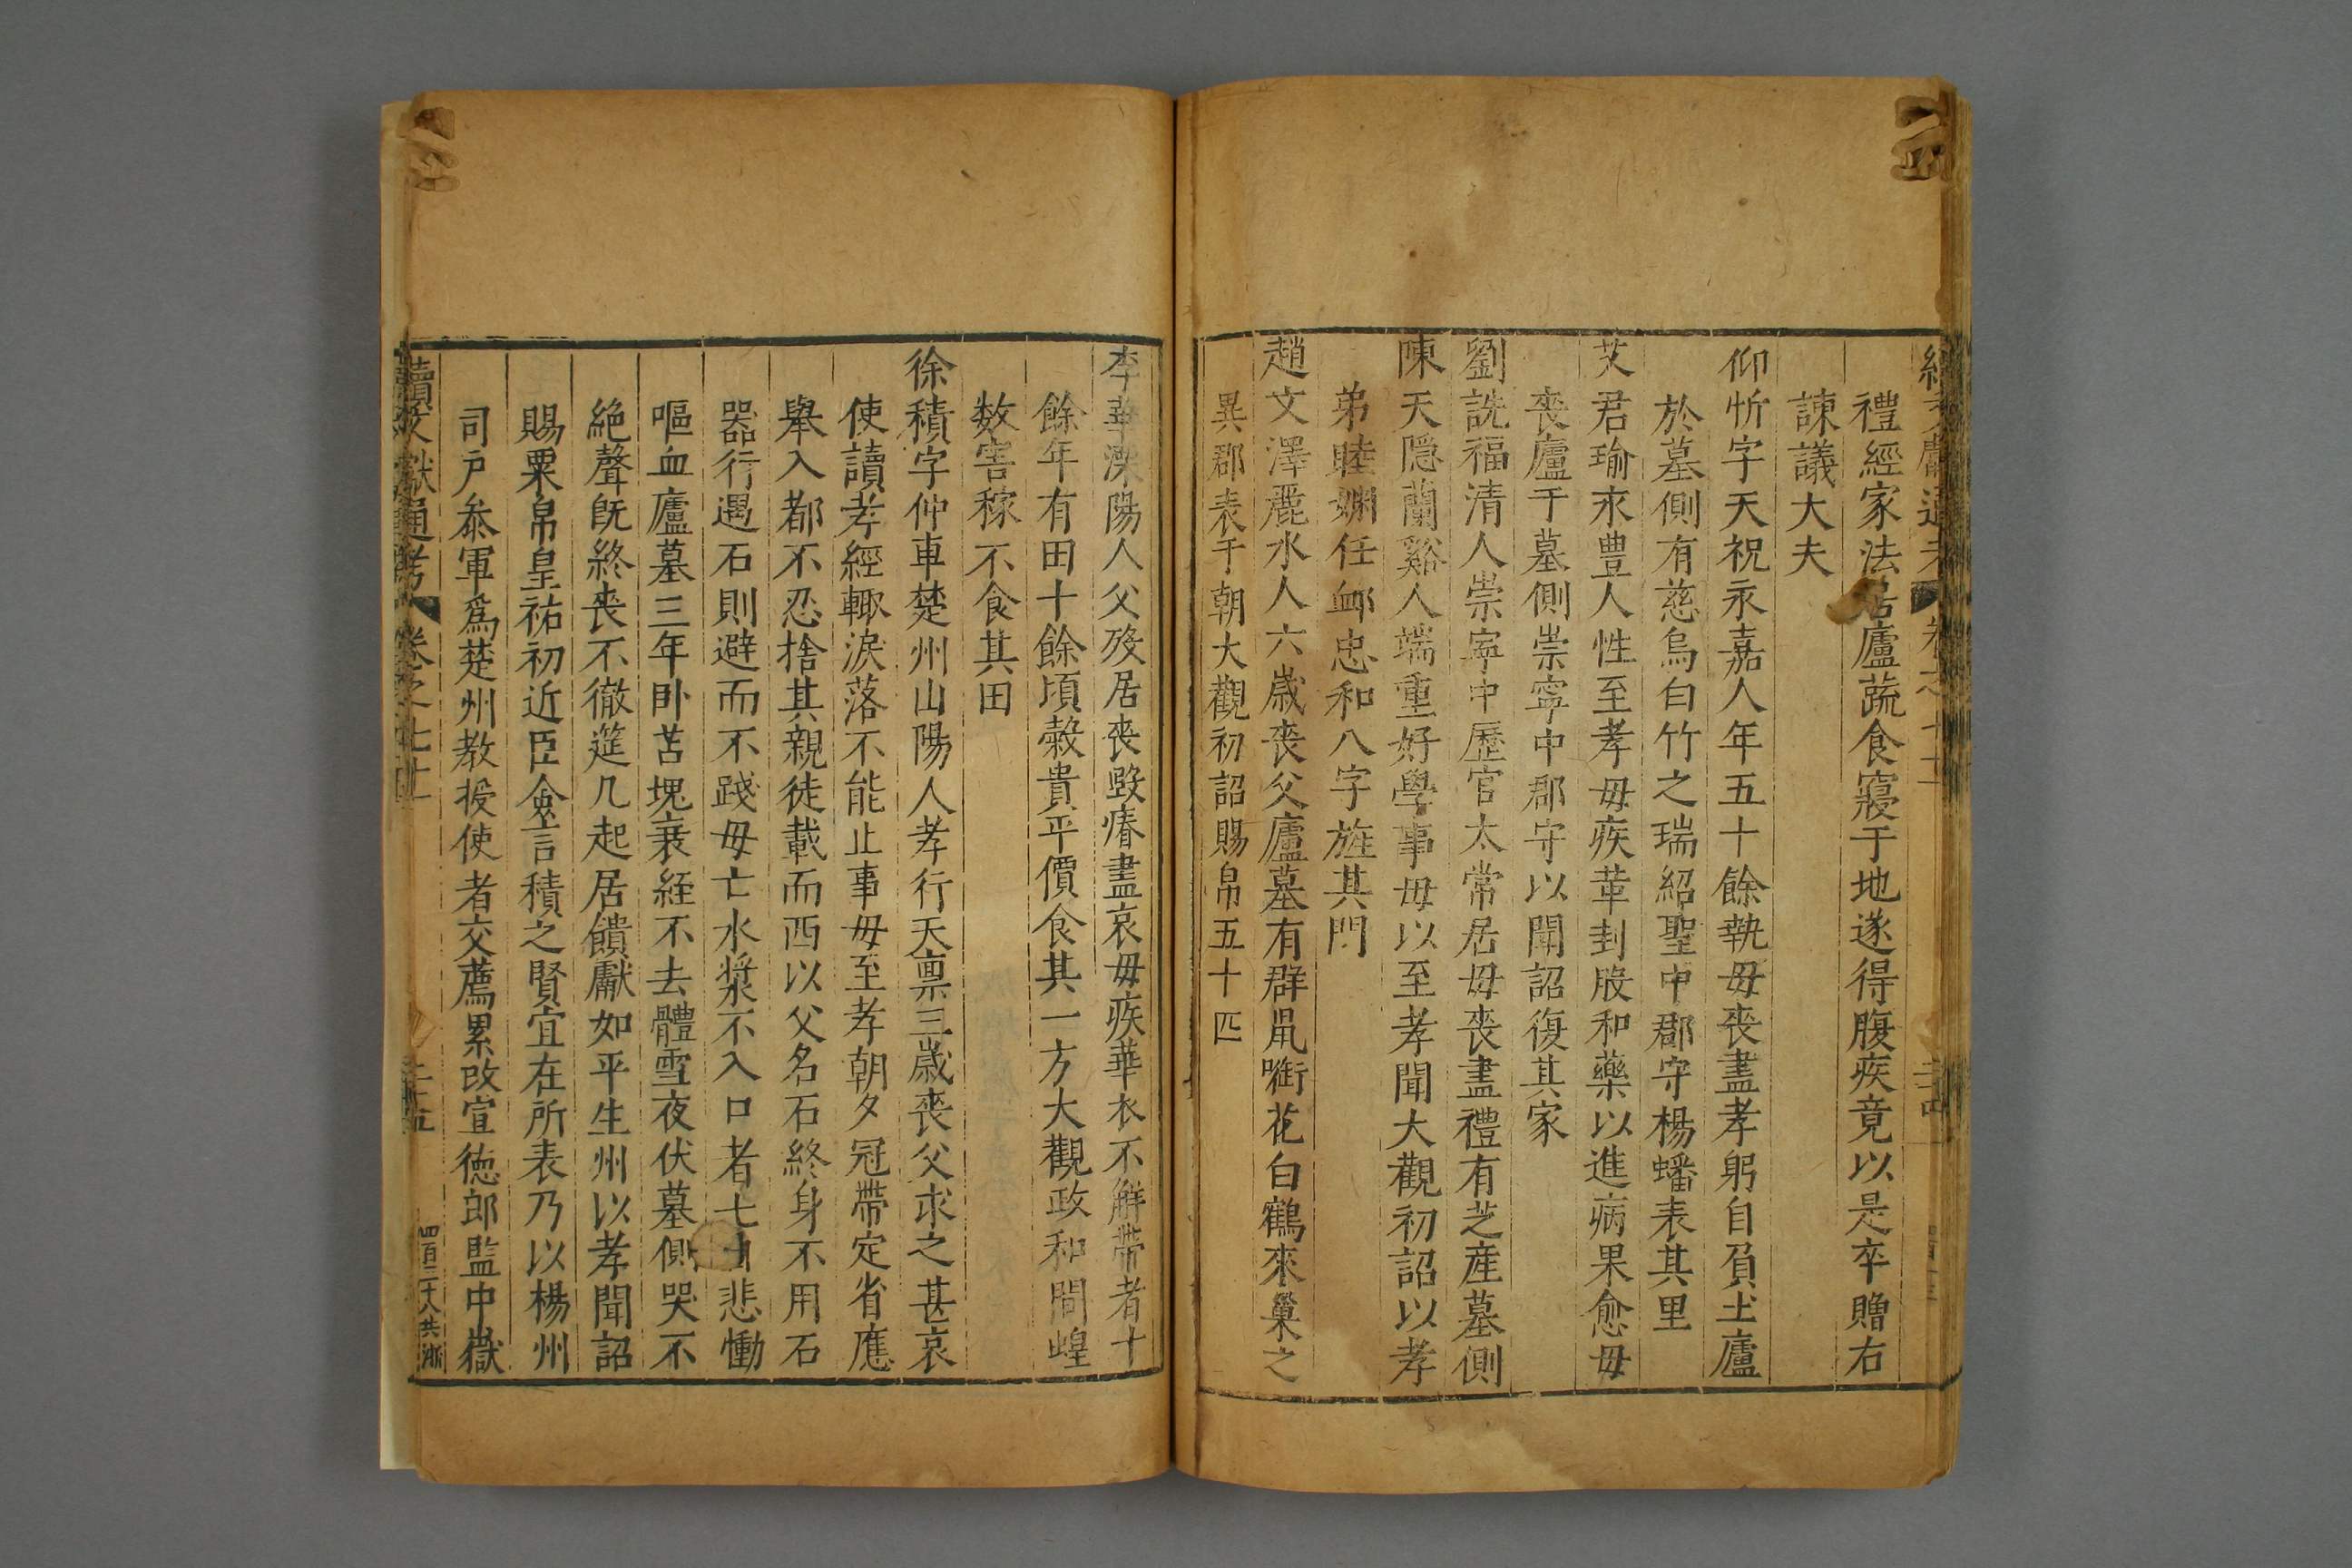 禮經家法居廬蔬食寢于地遂得腹疾竟以是卒贈右
諫議大夫
仰忻字天祝永嘉人年五十餘執毋喪盡孝躬自負土廬
於墓側有慈烏白竹之瑞紹聖中郡守楊蟠表其里
艾君瑜永豊人性至孝毋疾革刲股和藥以進病果愈毋
喪廬于墓側崇寧中郡守以聞詔復其家
劉詵福清人崇寧中歷官太常居毋喪盡禮有芝產墓側
陳天隱蘭谿人端重好學事毋以至孝聞大觀初詔以孝
弟睦婣任䘏忠和八字旌其門
趙文澤麗水人六歲喪父廬墓有群鼠啣花白鶴來巢之
異郡表于朝大觀初詔賜帛五十匹
李華溧陽人父歿居喪毀瘠盡哀毋疾華衣不解帶者十
餘年有田十餘頃穀貴平價食其一方大觀政和間蝗
数害稼不食其田
徐積字仲車楚州山陽人孝行天禀三歲喪父求之甚哀
使讀孝經輙淚落不能止事毋至孝朝夕冠帶定省應
舉入都不忍捨其親徒載而西以父名石終身不用石
器行遇石則避而不踐毋亡水漿不入口者七日悲慟
嘔血廬墓三年卧苫塊衰絰不去體雪夜伏墓側哭不
絕聲旣終喪不徹筵几起居饋獻如平生州以孝聞詔
賜粟帛皇祐初近臣僉言積之賢宜在所表乃以楊州
司戶叅軍爲楚州教授使者交薦累改宣德郎監中嶽
續文獻通考 卷之七十二 二十五
四百三十八 共 浙